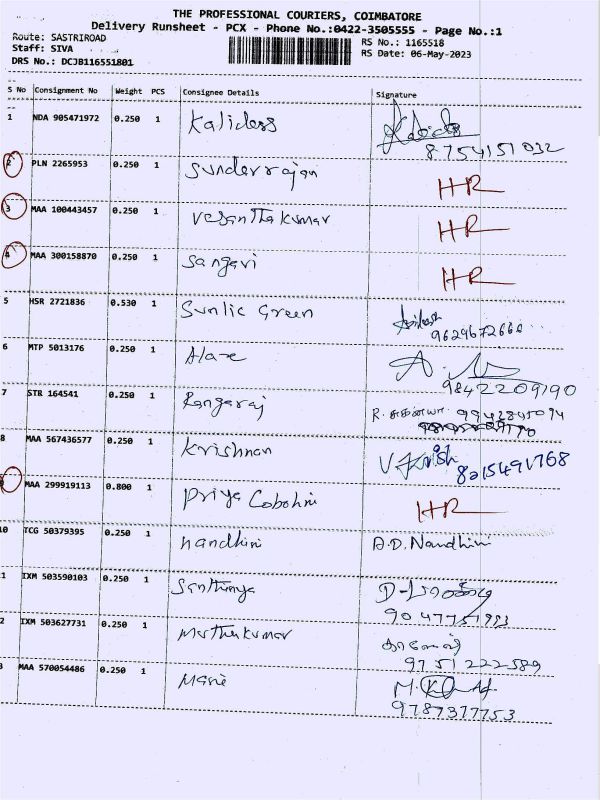 THE PROFESSIONAL COURIERS, COIMBATORE
Delivery Runsheet - PCX - Phone No.:0422-3505555 - Page No.:1
Route: SASTRIROAD RS No.: 1165518
Staff: SIVA RS Date: 06-May-2023
DRS No.: DCJB116551801
S No Consignment No Weight PCS Consignee Details Signature
1 NDA 905471972 0.250 1 Kalidoss
8754151032
2 PLN 2265953 0.250 1 Sunderrajan HR
3 MAA 100443457 0.250 1 Vesanthakumar HR
4 MAA 300158870 0.250 1 Sangavi HR
5 HSR 2721836 0.530 1 Sunlic Green
9629672660
6 MTP 5013176 0.250 1
9842209190
7 STR 164541 0.250 1 Rangaraj R. சுகன்யா 9942845094
8 MAA 567436577 0.250 1 Krishnan V Krish 8015491768
MAA 299919113 0.800 1 Priya HR
10 TCG 50379395 0.250 1 nandhini A.D. Nandhini
1 IXM 503590103 0.250 1
9047751993
2 IXM 503627731 0.250 1 Muthukumar
9751222589
3 MAA 570054486 0.250 1 Marie
9787377753